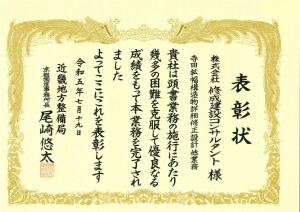 表彰状
寺田拡幅構造物詳細修正設計他業務
株式会社 修成建設コンサルタント 様
貴社は頭書業務の施行にあたり
幾多の困難を克服して優良なる
成績をもって本業務を完了され
ました
よってここにこれを表彰します
令和五年七月十九日
近畿地方整備局
京都国道事務所長 尾崎悠太